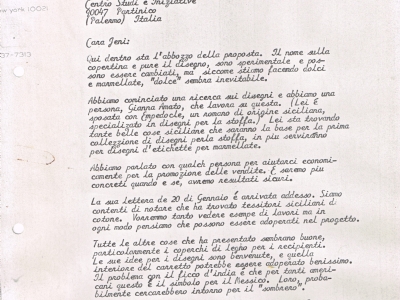 New York 10021
37-7313
Centro Studi e Iniziative
90047 Partinico
(Palermo) Italia
Cara Jeni:
Qui dentro sta l'abbozzo della proposta. Il nome sulla
copertina e pure il disegno, sono sperimentale e pos-
sono essere cambiati, ma siccome stiamo facendo dolci
e marmellate, "dolce" sembra inevitabile.
Abbiamo cominciato una ricerca sui disegni e abbiamo una
persona, Gianna Amato, che lavora su questa. (Lei E
sposata con Empedocle, un romano di origine siciliana,
specializato in disegni per la stoffa.) Lei sta trovando
tante belle cose siciliane che saranno la base per la prima
collezione di disegni perla stoffa, in piu servirànno
per disegni d'etichette per marmellate.
Abbiamo parlato con qualch persona per aiutarci economi-
camente per la promozione delle vendite. E saremo piu
concreti quando e se, avrem resultati sicuri.
La sua lettera de 20 di Gennaio é arrivata addesso. Siamo
contenti di notare che ha trovato tessitori siciliani di
cotone. Vorremmo tanto vedere esempe di lavori ma in
ogni modo pensiamo che possono essere adoperati nel progetto.
Tutte le altre cose che ha presentato sembrano buone,
particolarmente i coperchi di legho per i recipienti.
Le sue idee per i disegni sono benvenute, e quella
interiore del carretto potrebbe essere adoperato benissimo.
Il problema con il fico d'india é che per tanti ameri-
cani questo é il simbolo per il Messico. Loro, proba-
bilmente cercarebbero intorno per il "sombrero".